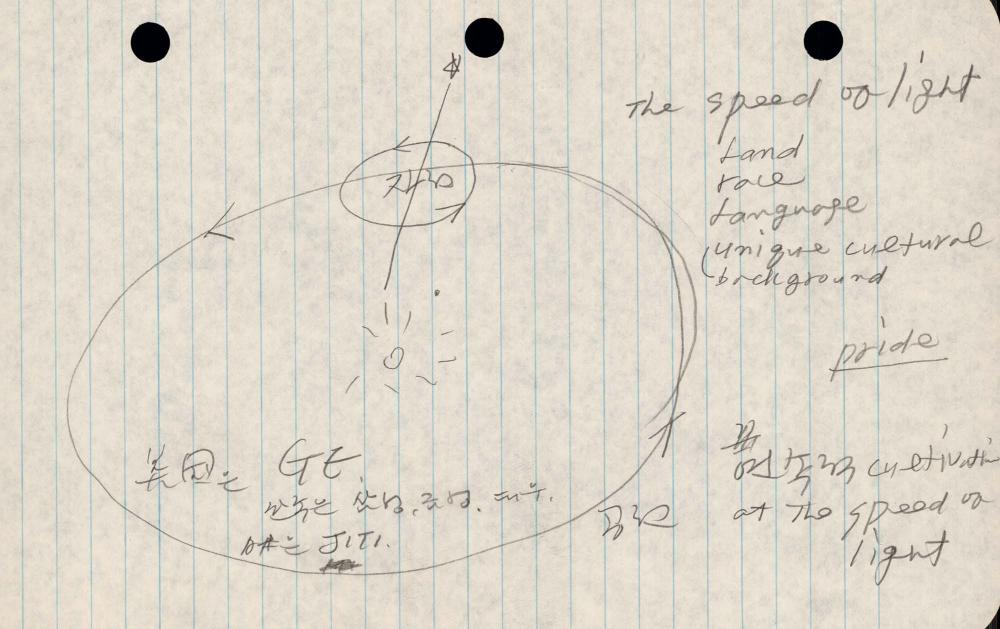 The speed of light
Land
race
Language
(unique cultural
background
pride
자전
美国는 GE
한국은 삼성, 효성, 대우.
日本는 JITI.
공전
cultivatin
at the speed of
light